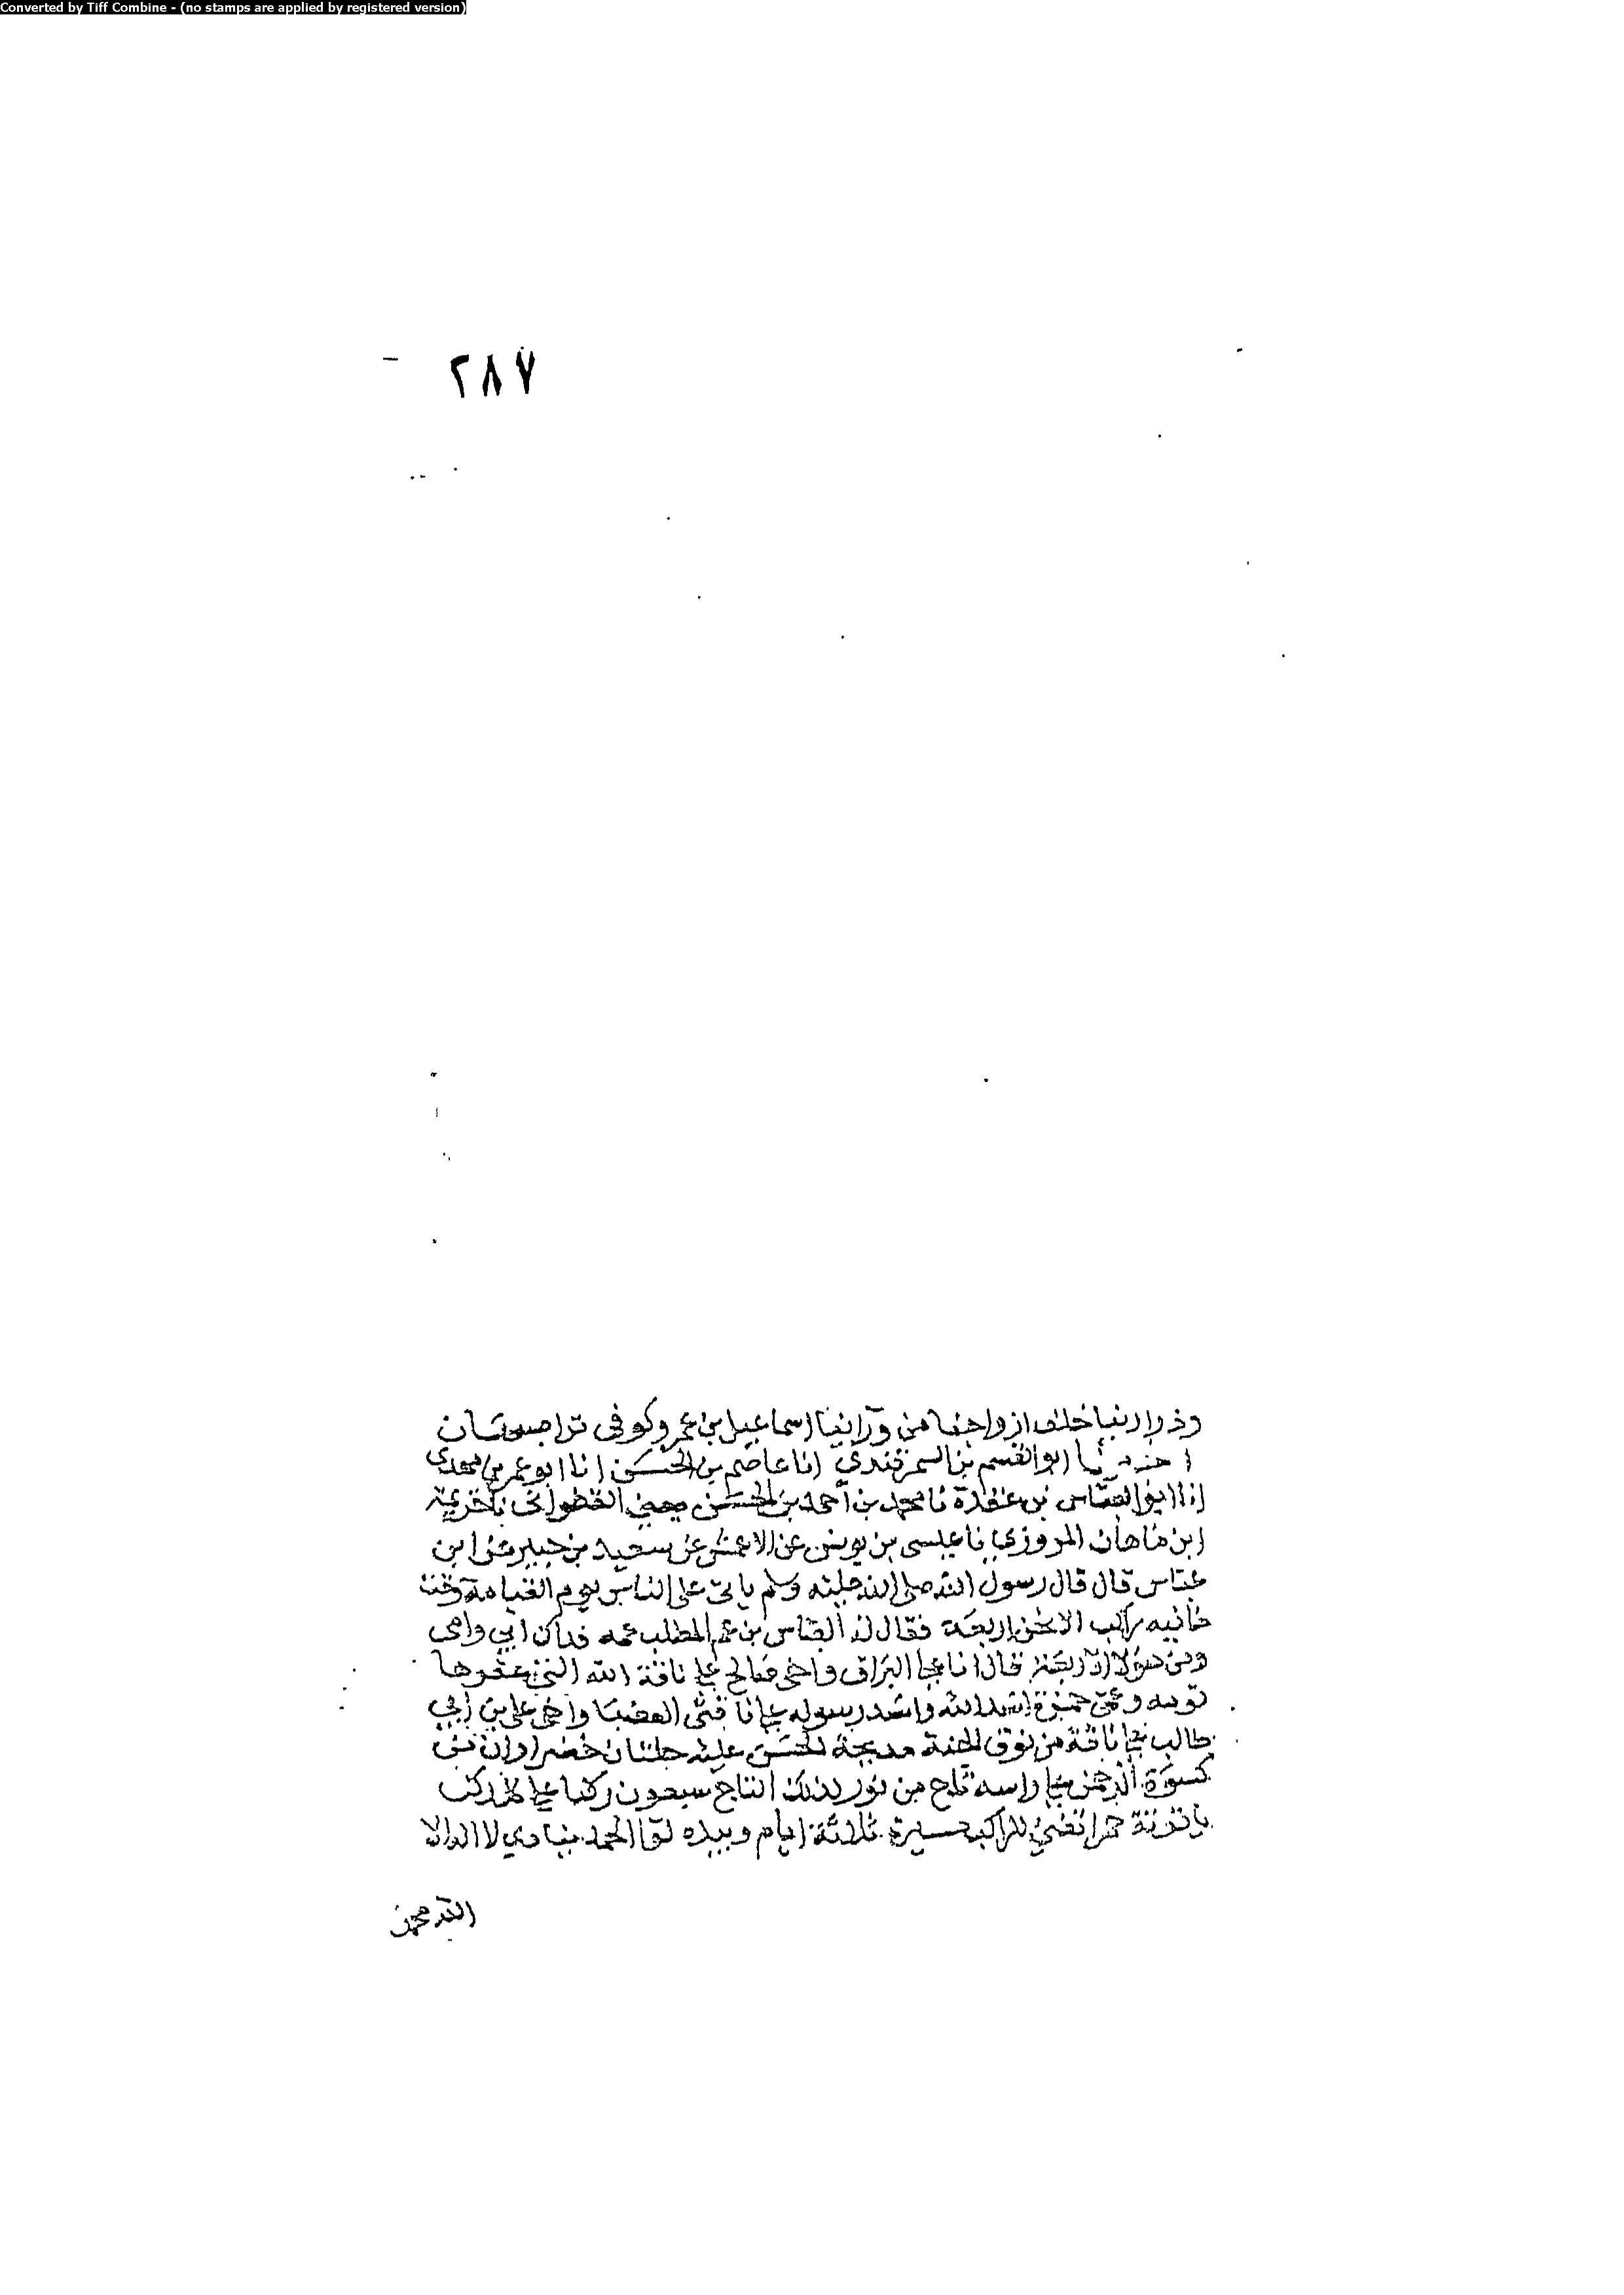 Converted by Tiff Combine - (no stamps are applied by registered version)
٢٨٧
وذرارينا خلف ازواجنا من ورائنا اسماعيل بن عمرو كوفي
ابو القسم بن السمرقندي انا عاصم بن الحسن انا ابو عمر بن مهدي
انا ابو العباس بن عقدة نا محمد بن أحمد بن الحسن القطواني نا خزيمة
ابن ماهان المروزي نا عيسى بن يونس عن الاعمش عن سعيد بن جبير عن ابن
عباس قال قال رسول الله صلى الله عليه وسلم ياتي على الناس يوم القيامة وقت
ما فيه راكب الا نحن اربعة فقال له العباس بن عبد المطلب عمه فداك ابي وامي
ومن هؤلاء الاربعة قال انا على البراق واخي صالح على ناقة الله التي عقرها
قومه وعمي حمزة اسد الله واسد رسوله على ناقتي العضبا واخي علي بن أبي
طالب على ناقة من نوق الجنة مدبجة الجنبين عليه حلتان خضراوان من
كسوة الرحمن على راسه تاج من نور لذلك التاج سبعون ركنا على كل ركن
ياقوتة حمرا تضيء للراكب مسيرة ثلاثة ايام وبيده لوا الحمد ينادي لا اله الا
الله محمد